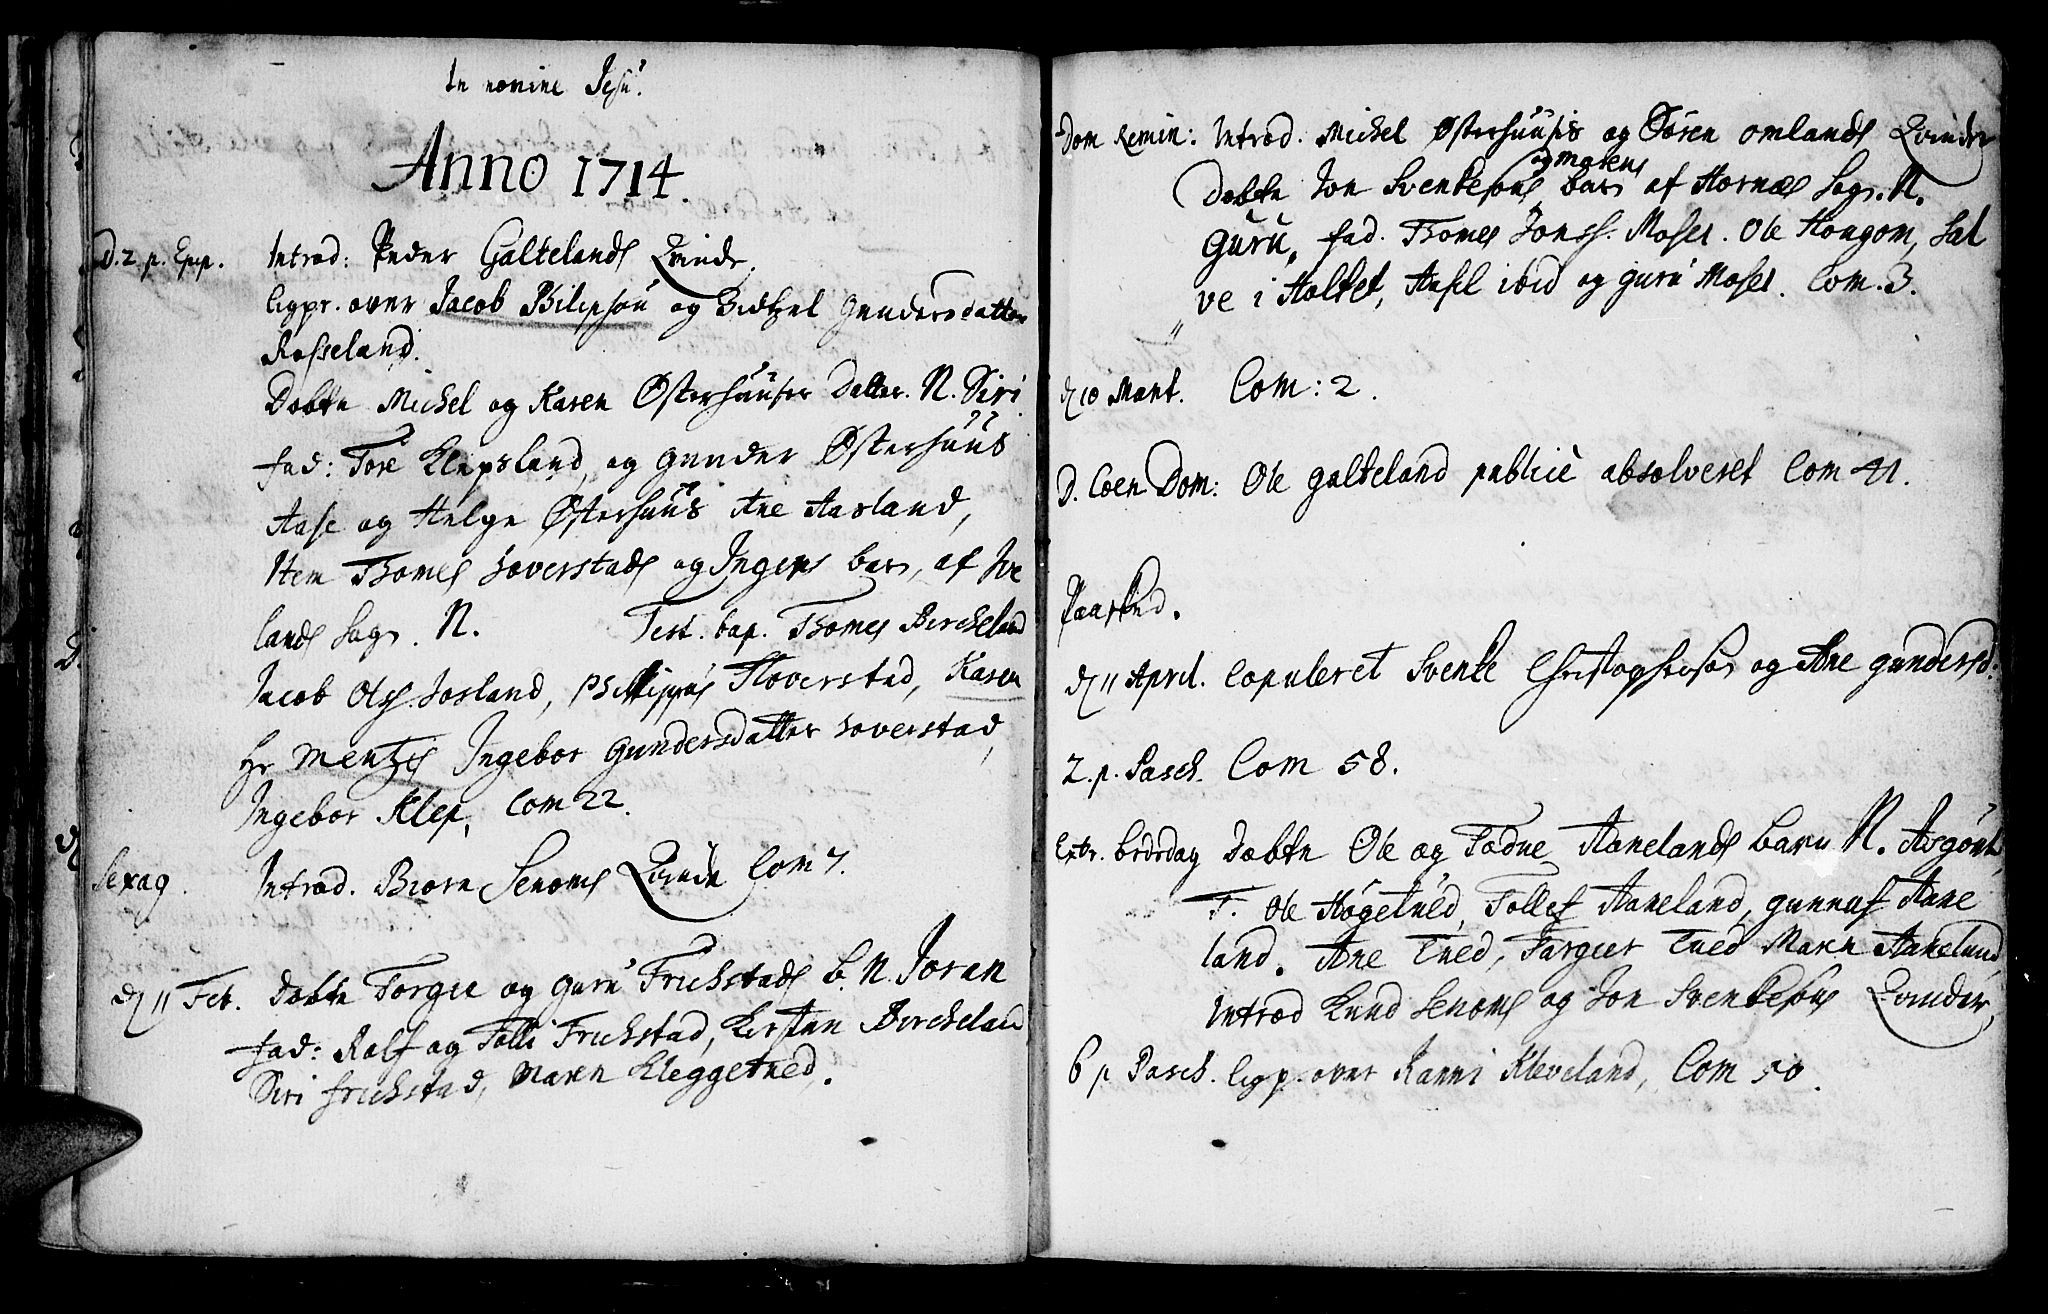 In nomine Jesu.
Anno 1714.
D. 2. p. Epip. Introd: Peder Galtelands Qvinde
ligpr. over Jacob Philipsøn og Gundersdatter
Rosseland.
Døbte Michel og Karen Østerhuuses Datter. N. Siri
fad: Tore Klepsland, og Gunder Østerhuus
Aase og Helge Østerhuus Ane Aasland,
Item Thomes Hoverstads og Ingers barn, af Ive
lands sogn. N. Test. bap. Thomes Bircheland
Jacob Ols. Josland, Philippus Hoverstad, Karen
Hr Mentzes Ingebor Gundersdatter Hoverstad,
Ingebor Klep, Com 22.
Sexag. Introd. Biørn Senoms Qvinde Com 7.
d 11 Feb. Døbte Torgie og Guru Frichstads b. N. Joran
fad: Rolf og Tolli Frichstad, Kirsten Bircheland
Siri Frichstad, Maren Kleggetued.
Dom Remin: Introd. Michel Østerhuuses og Omlands Qvinder
og Marens
Døbte Jon Svenkesøns barn af Hornes Sogn. N.
Guru, fad. Thomes Jonss. Moses. Ole Haagom, Sal
ve i Holtet, Aasil ibid og Guru Moses. Com. 3.
d 10 Mart. Com: 2.
D. Coen Dom: Ole Galteland publicè absolveret Com 41.
Paasked.
d 11 April. Copuleret Svenke Christophersøn og Ane Gundersd.
2. p. Pasch. Com 58.
Extr. bededag Døbte Ole og Todne Aanelands barn N. Asgout,
T. Ole Høgetued, Tollef Aaneland, Gunnuf Aane
land. Ane Tued, Torgier Tued Maren Aaneland,
Introd Knud Senoms og Jon Svenkesøns Qvinder,
6 p Pasch. ligp. over Ranni Kleveland, Com 50.